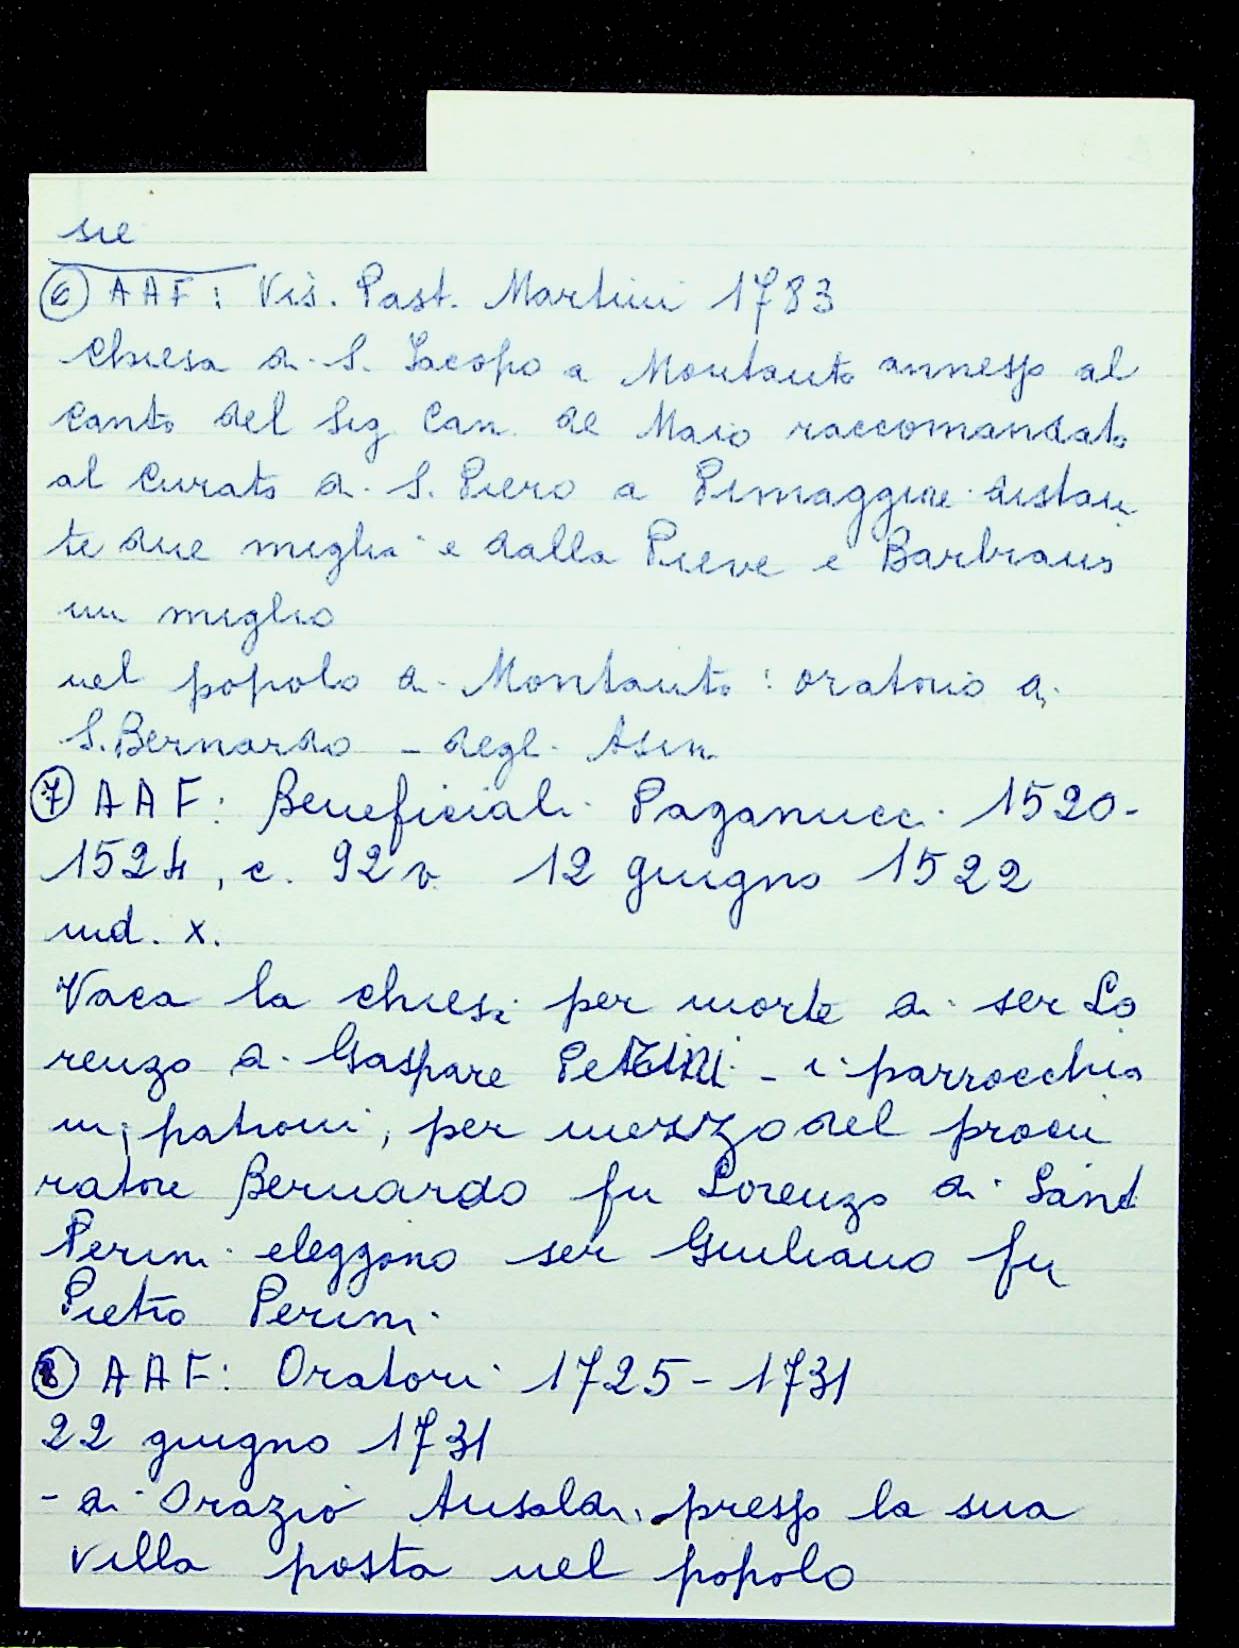 sie
⑥ AAF: Vis. Past. Martini 1783
Chiesa di S. Jacopo a Montauto annesso al
Canto del Sig Can. de Maio raccomandato
al Curato di S. Piero a Pimaggiore distan
te due miglia e dalla Pieve e Barbiano
un miglio
nel popolo di Montauto: oratorio di
S. Bernardo - degli Asini
⑦ AAF: Beneficiali Paganucci 1520-
1524, c. 92v 12 giugno 1522
ind. x.
Vaca la chiesa per morte di ser Lo
renzo di Gaspare - i parrocchia
ni, patroni, per mezzo del procu
ratore Bernardo fu Lorenzo di Santi
Perini eleggono ser Giuliano fu
Pietro Perini
⑧ AAF: Oratori 1725-1731
22 giugno 1731
- di Orazio Ansaldi presso la sua
villa posta nel popolo